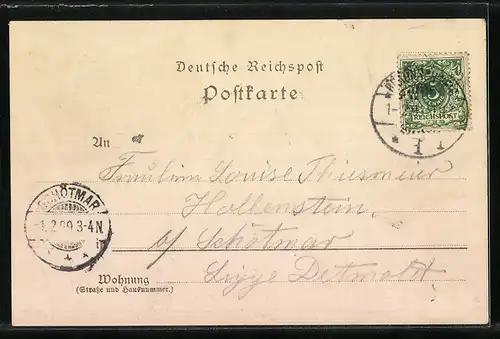 Deutsche Reichspost
Postkarte
REICHSPOST
An
Fräulein Louise Thiesmeier
Hollenstein
SCHÖTMAR
1.2.99 3-4N.
b/ Schötmar
Lippe Detmold
Wohnung
(Straße und Hausnummer.)